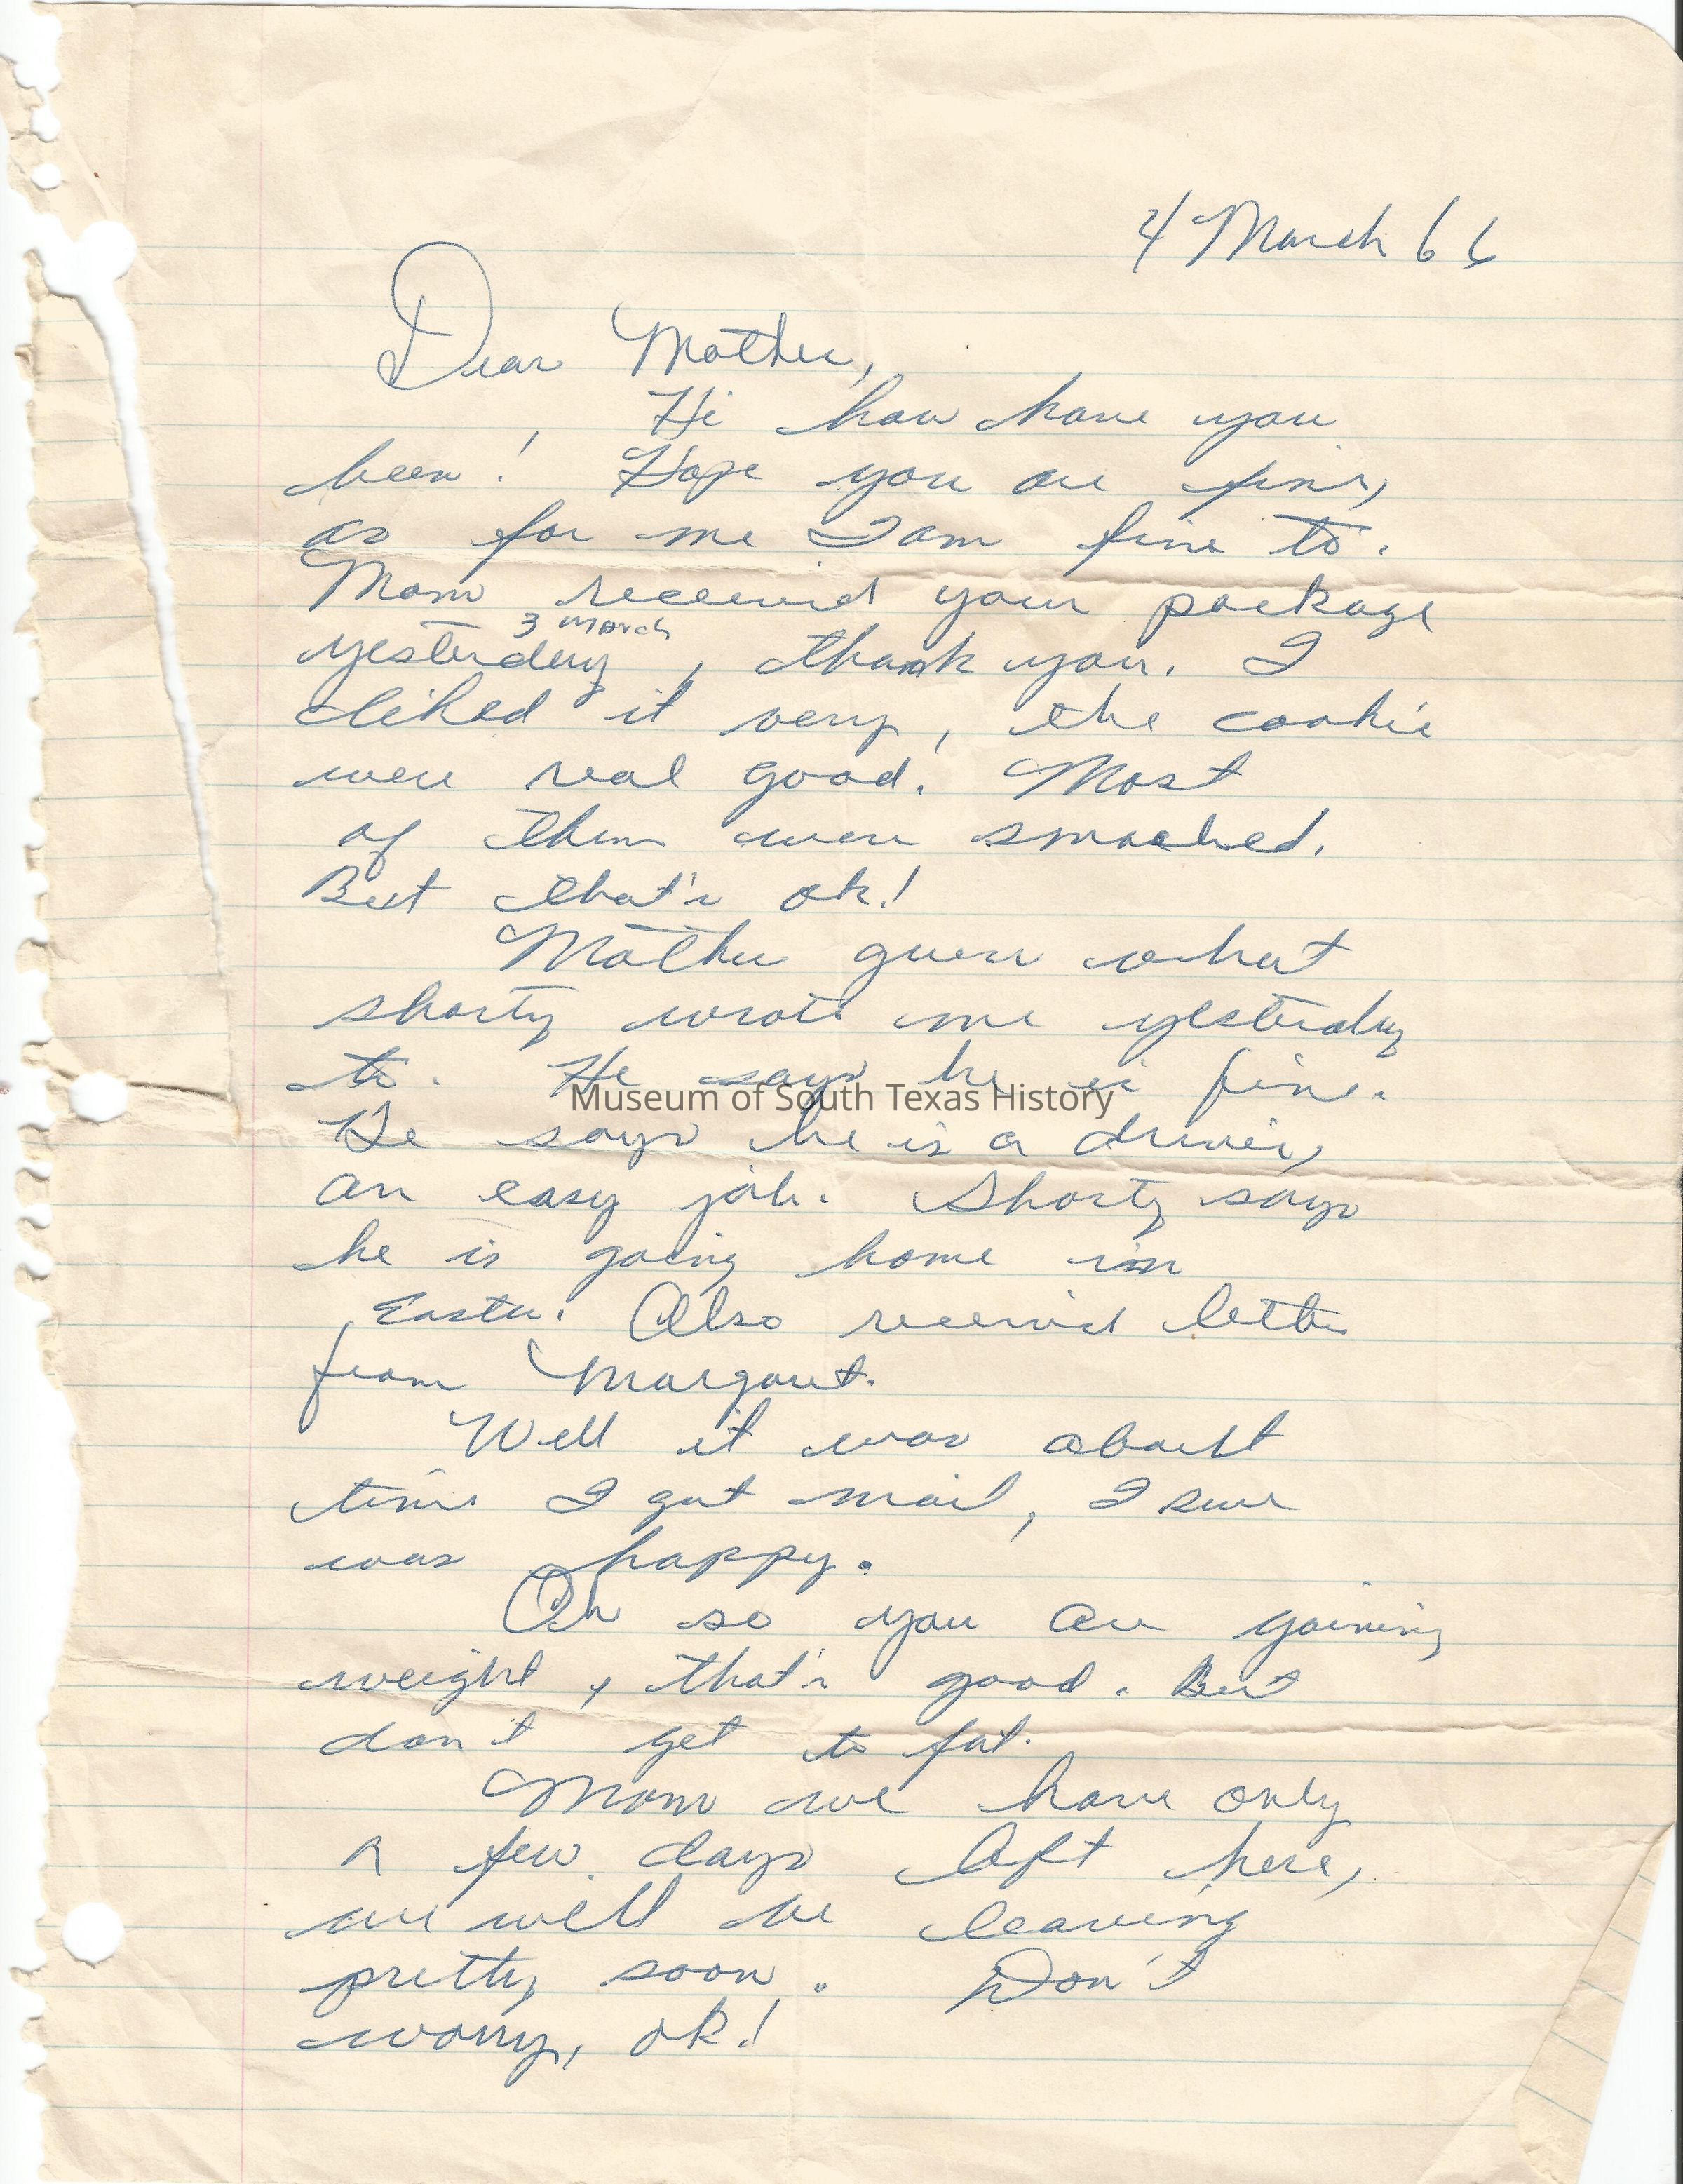 4 March 66
Dear Mother,
Hi how have you
been! Hope you are fine,
as for me I am fine to.
Mom received your package
3 March
yesterday, thank you. I
liked it very, the cookie
were real good. Most
of them were smached.
But that's ok!
Mother guess what
shorty wrote me yesterday
to. He says he is fine.
Museum of South Texas History
He says he is a driver,
an easy job. Shorty says
he is going home in
Easter. Also received letter
from Margaret.
Well it was about
time I got mail, I sure
was happy.
Oh so you are gaining
weight, that's good. But
don't get to fat.
Mom we have only
a few days left here,
we will be leaving
pretty soon. Don't
worry, ok!